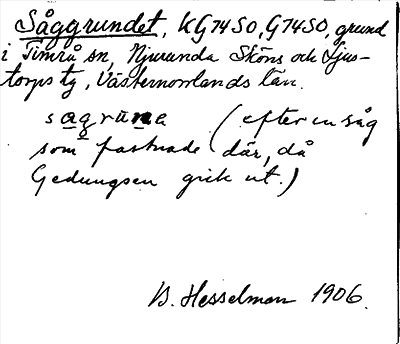 Såggrundet, KG74SO, G74SO, grund
i Timrå sn, Njurunda Sköns och Ljus-
torps tg, Västernorrlands län.
(efter en såg
som fastnade där, då
gick ut.)
B. Hesselman 1906.